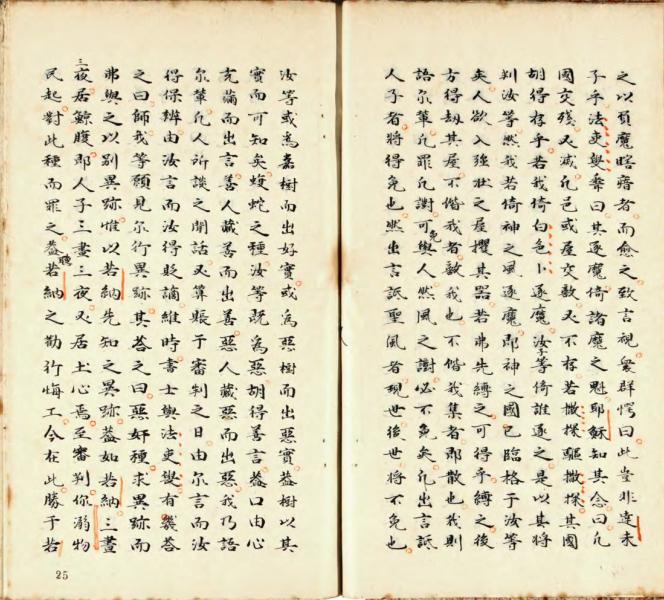 之以負魔瞎瘖者而愈之致言視衆群愕曰此豈非達未
子乎法吏與衆曰其逐魔倚諸魔之魁耶穌知其念曰凡
國交殘又滅凡邑或屋交敵又不存若撒探驅撒探其國
胡得存乎若我倚白色卜逐魔汝子等倚誰逐之是以其將
判汝等然我若倚神之風逐魔即神之國已臨格于汝等
矣人欲入强壯之屋攫其器若弗先縛之可得乎縛之後
方得劫其屋不偕我者敵我也不偕我集者即散也我則
語尔輩凡罪凡謝可免與人然風之謝必不免矣凡出言詆
人子者將得免也然出言詆聖風者現世後世將不免也
汝等或爲嘉樹而出好實或爲惡樹而出惡實蓋樹以其
實而可知矣蝮蛇之種汝等既爲惡胡得善言蓋口由心
充滿而出言善人藏善而出善惡人藏惡而出惡我乃語
尔輩凡人所談之閒話又算賬于審判之日由尔言而汝
得保辦由汝言而汝得貶謫維時書士與法吏輩有幾荅
之曰師我等願見尔行異跡其荅之曰惡奸種求異跡而
弗與之以別異跡惟以若納先知之異跡蓋如若納三晝
三夜居鯨腹即人子三晝三夜又居土心焉至審判你溺物
民起對此種而罪之蓋聽若納之勸行悔工今在此勝于若
25